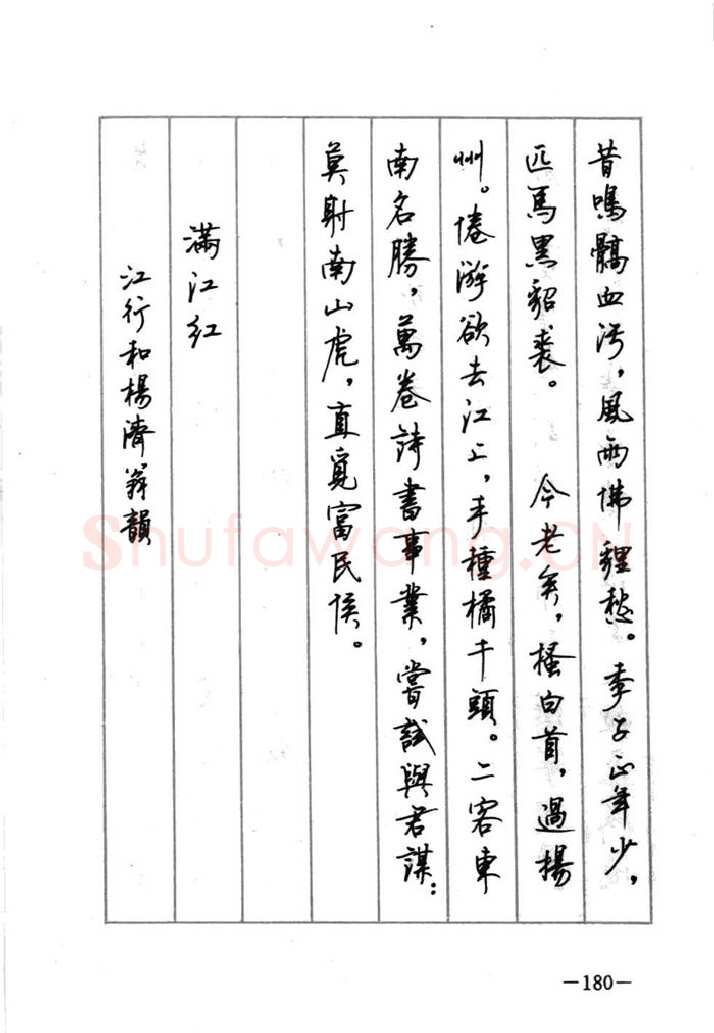 昔鳴髇血污，風雨佛貍愁。季子正年少，
匹馬黑貂裘。　今老矣，搔白首，過揚
州。倦游欲去江上，手種橘千頭。二客東
南名勝，萬卷詩書事業，嘗試與君謀：
莫射南山虎，直覓富民侯。
滿江紅
江行和楊濟翁韻
Shufawang.CN
—180—